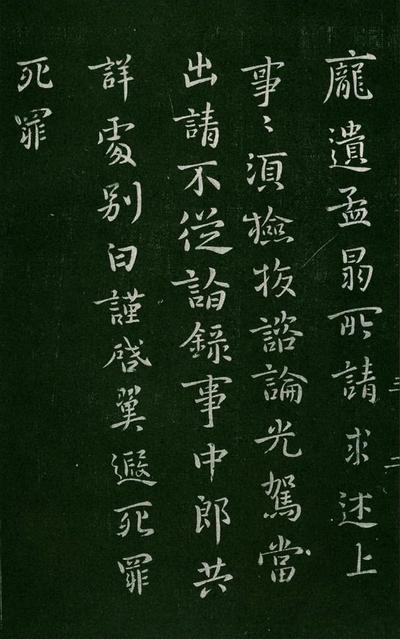 龐遺孟所請求述上
事〻須檢諮論光駕當
出請不從詣錄事中郎共
詳處別白謹啓翼遐死罪
死罪
三二